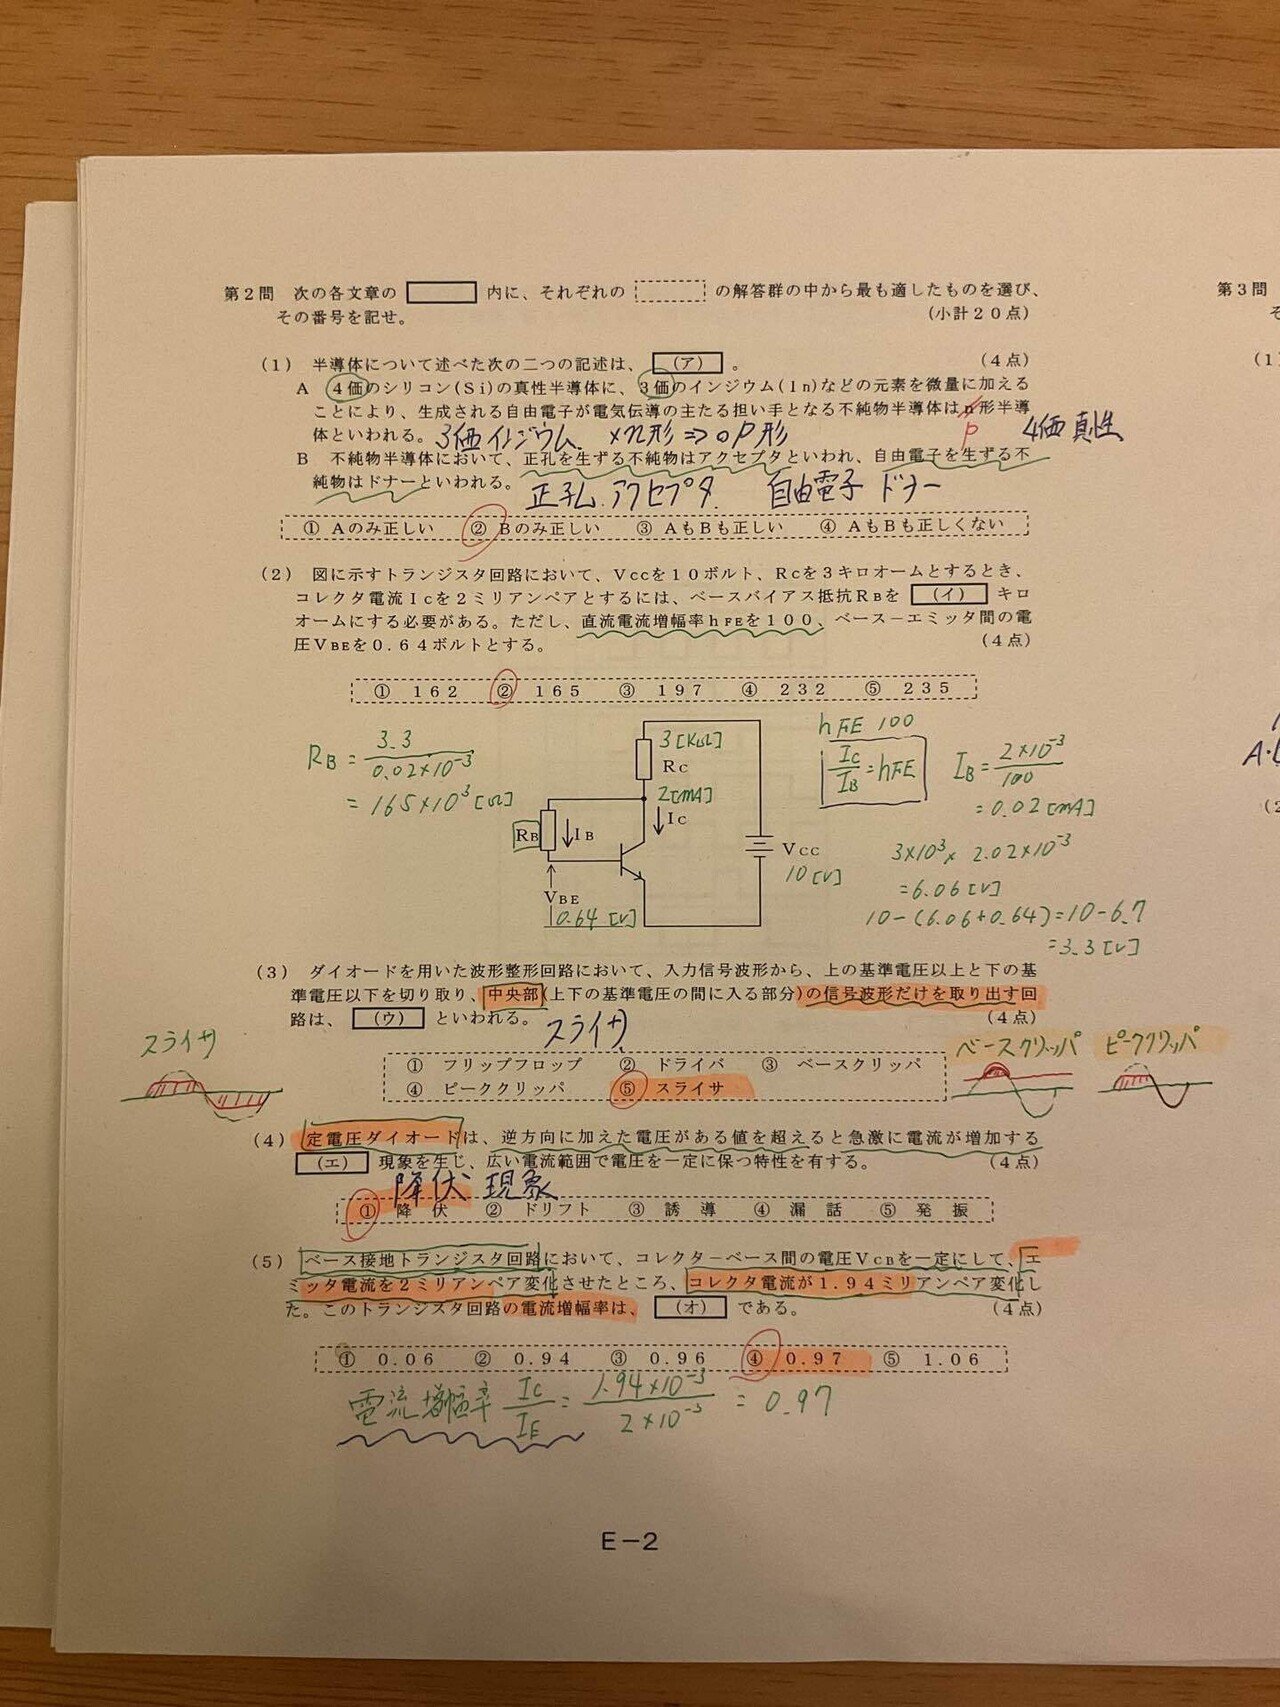 第2問 次の各文章の 内に、それぞれの の解答群の中から最も適したものを選び、
その番号を記せ。 (小計20点)
(1) 半導体について述べた次の二つの記述は、 (ア) 。 (4点)
A 4価のシリコン(Si)の真性半導体に、3価のインジウム(In)などの元素を微量に加える
ことにより、生成される自由電子が電気伝導の主たる担い手となる不純物半導体はn形半導
p
体といわれる。 3価インジウム ×n形⇒○p形 4価真性
B 不純物半導体において、正孔を生ずる不純物はアクセプタといわれ、自由電子を生ずる不
純物はドナーといわれる。 正孔 アクセプタ 自由電子 ドナー
① Aのみ正しい ② Bのみ正しい ③ AもBも正しい ④ AもBも正しくない
(2) 図に示すトランジスタ回路において、Vccを10ボルト、Rcを3キロオームとするとき、
コレクタ電流Icを2ミリアンペアとするには、ベースバイアス抵抗RBを (イ) キロ
オームにする必要がある。ただし、直流電流増幅率hFEを100、ベース-エミッタ間の電
圧VBEを0.64ボルトとする。 (4点)
① 162 ② 165 ③ 197 ④ 232 ⑤ 235
RB = 3.3 / 0.02×10⁻³
= 165×10³[Ω]
3[KΩ]
Rc
2[mA]
Ic
RB
IB
VBE
0.64[V]
Vcc
10[V]
hFE 100
Ic/IB = hFE
IB = 2×10⁻³ / 100
= 0.02[mA]
3×10³× 2.02×10⁻³
= 6.06[V]
10-(6.06+0.64)=10-6.7
=3.3[V]
(3) ダイオードを用いた波形整形回路において、入力信号波形から、上の基準電圧以上と下の基
準電圧以下を切り取り、中央部(上下の基準電圧の間に入る部分)の信号波形だけを取り出す回
路は、 (ウ) といわれる。 スライサ (4点)
スライサ
① フリップフロップ ② ドライバ ③ ベースクリッパ
④ ピーククリッパ ⑤ スライサ
ベースクリッパ ピーククリッパ
(4) 定電圧ダイオードは、逆方向に加えた電圧がある値を超えると急激に電流が増加する
(エ) 現象を生じ、広い電流範囲で電圧を一定に保つ特性を有する。 (4点)
降伏 現象
① 降伏 ② ドリフト ③ 誘導 ④ 漏話 ⑤ 発振
(5) ベース接地トランジスタ回路において、コレクタ-ベース間の電圧VCBを一定にして、エ
ミッタ電流を2ミリアンペア変化させたところ、コレクタ電流が1.94ミリアンペア変化し
た。このトランジスタ回路の電流増幅率は、 (オ) である。 (4点)
① 0.06 ② 0.94 ③ 0.96 ④ 0.97 ⑤ 1.06
電流増幅率 Ic/IE = 1.94×10⁻³ / 2×10⁻³ = 0.97
E-2
第3問
そ
(1)
A・
(2